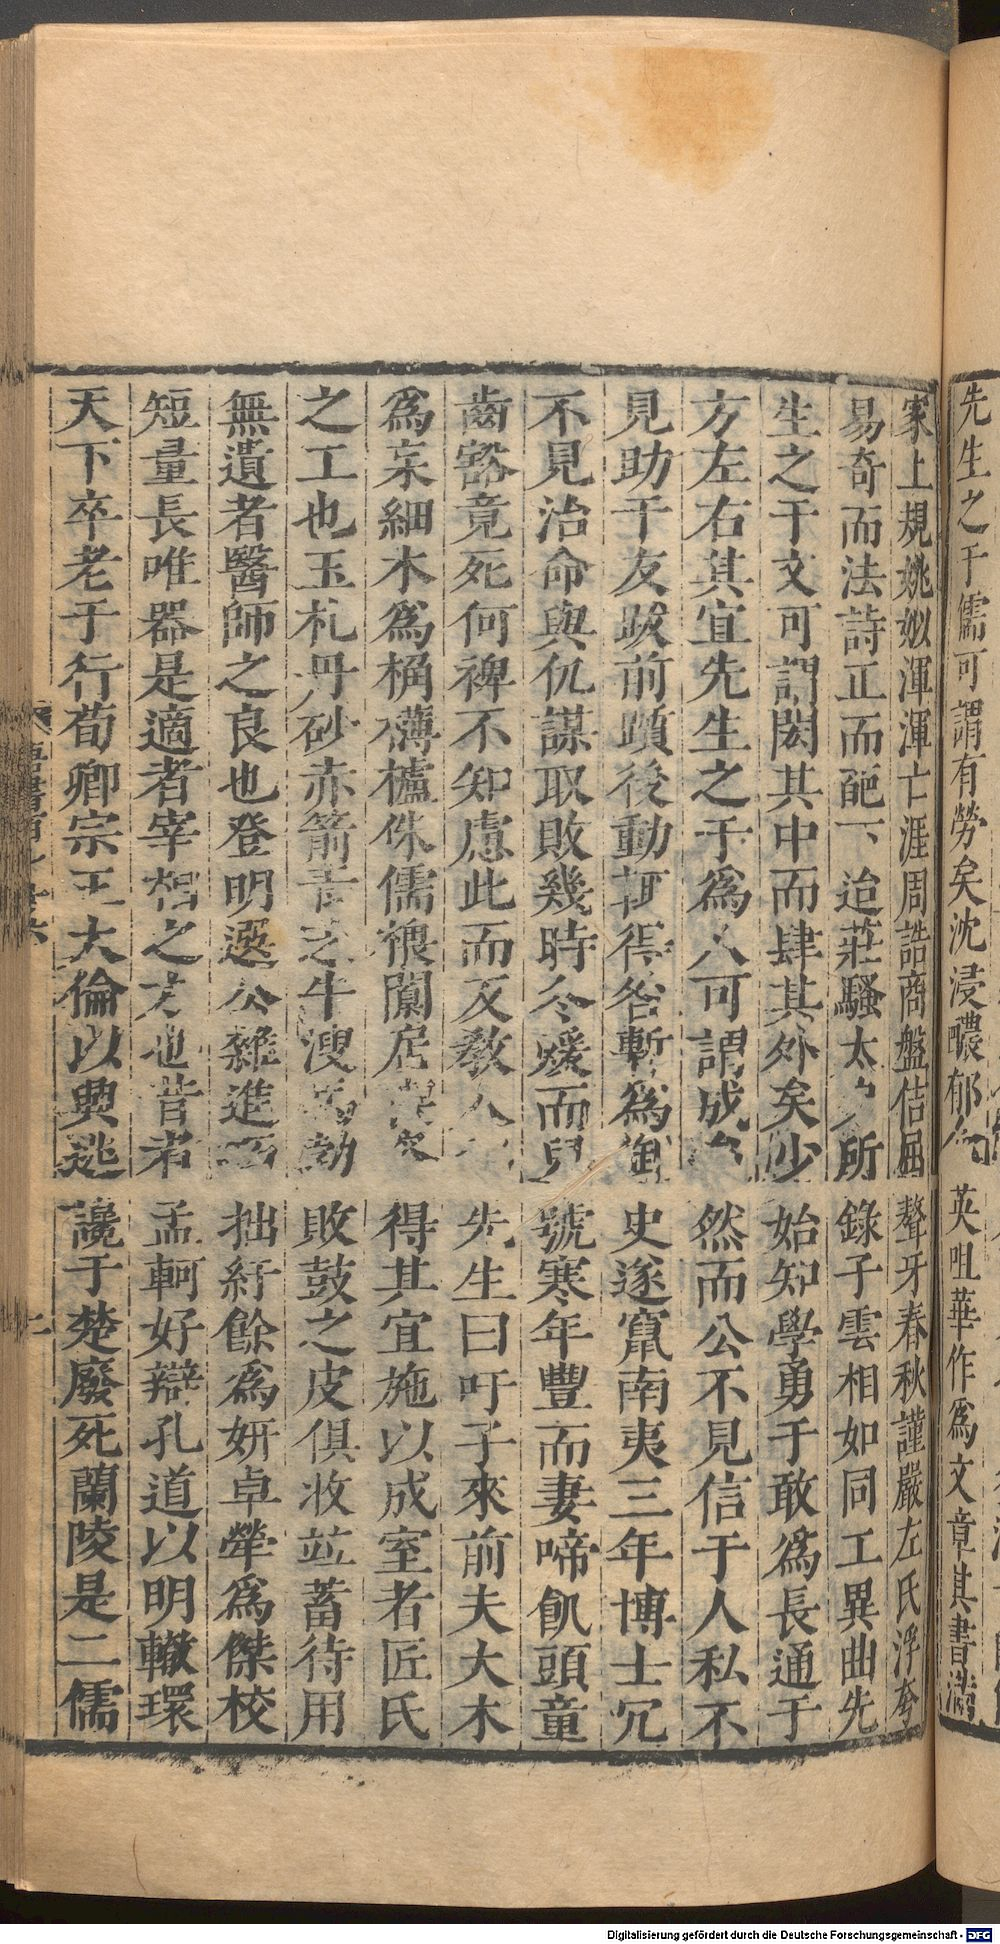 先生之于儒可謂有勞矣沈浸醲郁 英咀華作爲文章其書滿
家上規姚姒渾渾亡涯周誥商盤佶屈聱牙春秋謹嚴左氏浮夸
易奇而法詩正而葩下迨莊騷太 所錄子雲相如同工異曲先
生之于文可謂閎其中而肆其外矣少始知學勇于敢爲長通于
方左右其宜先生之于爲人可謂成 然而公不見信于人私不
見助于友跋前躓後動輒得咎暫爲御史遂竄南夷三年博士冗
不見治命與仇謀取敗幾時冬煖而兒號寒年豐而妻啼飢頭童
齒豁竟死何裨不知慮此而反教人 先生曰吁子來前夫大木
爲杗細木爲桷欂櫨侏儒椳闑扂 得其宜施以成室者匠氏
之工也玉札丹砂赤箭青芝牛溲馬勃敗鼓之皮俱收竝蓄待用
無遺者醫師之良也登明選公雜進 拙紆餘爲妍卓犖爲傑校
短量長唯器是適者宰相之方也昔者孟軻好辯孔道以明轍環
天下卒老于行荀卿宗王大倫以興逃讒于楚廢死蘭陵是二儒
Digitalisierung gefördert durch die Deutsche Forschungsgemeinschaft - DFG